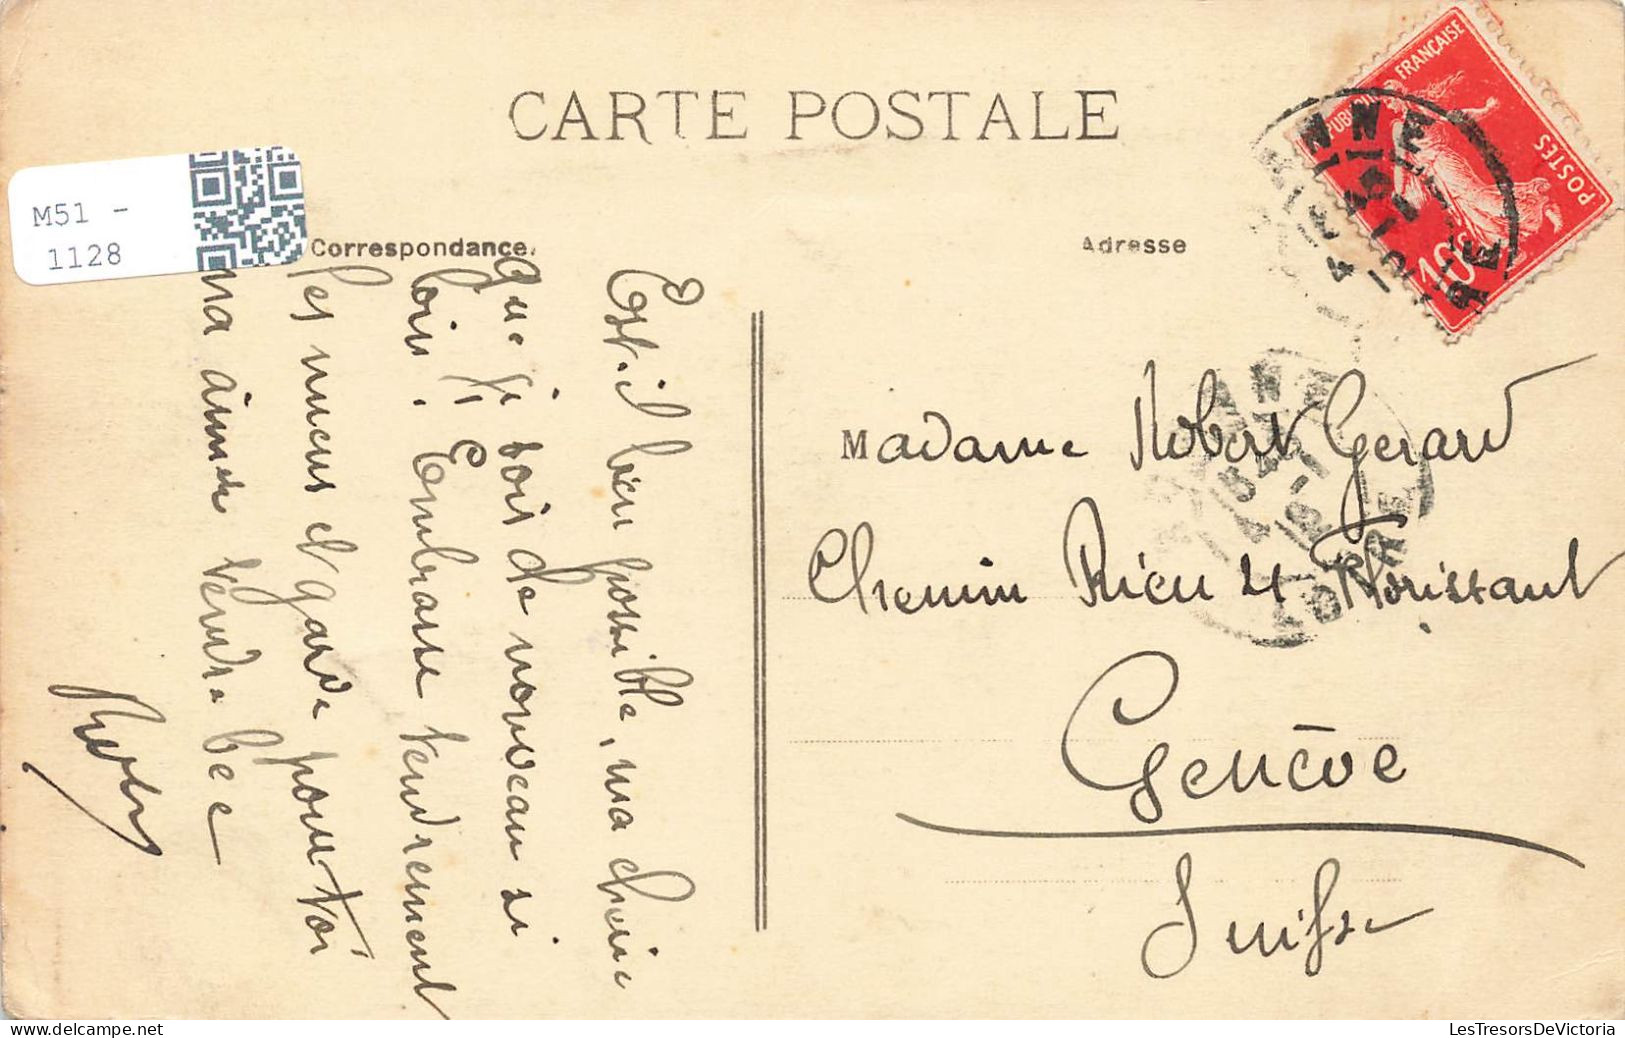 CARTE POSTALE
M51 -
1128
Correspondance.
Adresse
REPUBLIQUE FRANÇAISE
POSTES
10c
Est-il bien possible, ma chérie
que je sois de nouveau si
loin ! Embrasse tendrement
les mieux et garde pour toi
ma aimée tendre bec
Madame Robert Gerard
Chemin Rieu 4 Florissant
Genève
Suisse
LesTresorsDeVictoria